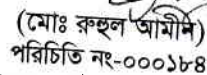 (মোঃ রুহুল আমীন)
পরিচিতি নং-০০০১৮৪